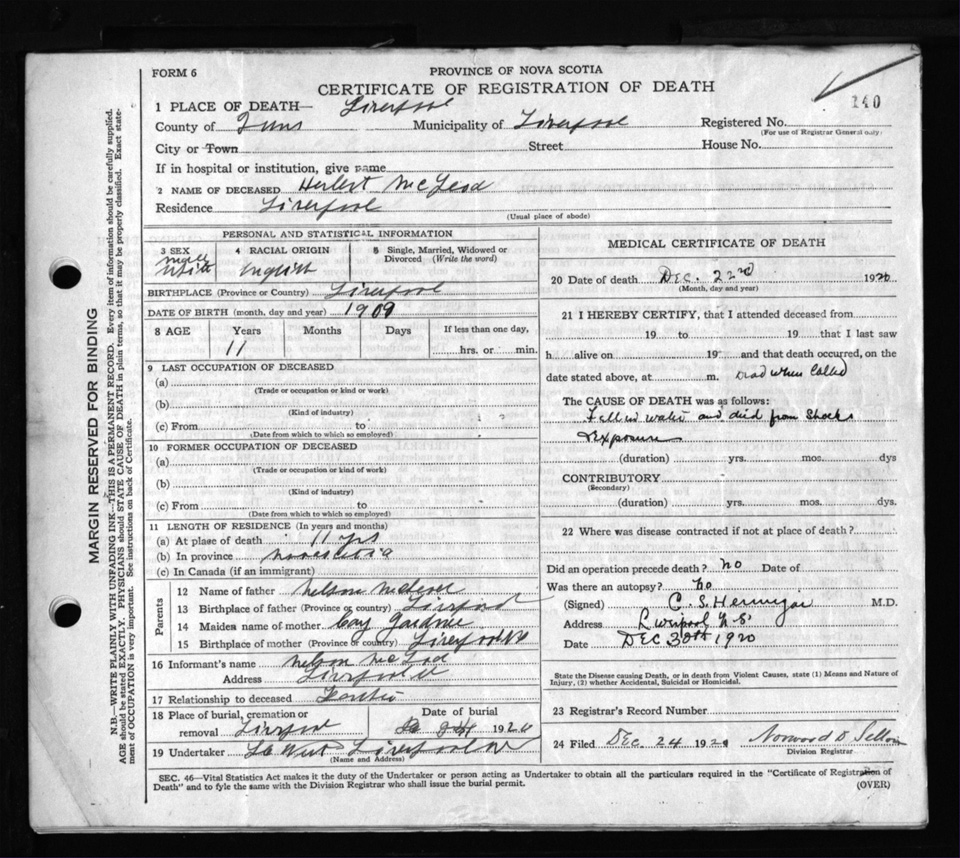 FORM 6
PROVINCE OF NOVA SCOTIA
CERTIFICATE OF REGISTRATION OF DEATH
140
1 PLACE OF DEATH— Liverpool
County of Municipality of Liverpool Registered No.
(For use of Registrar General only)
City or Town Street House No.
If in hospital or institution, give name
2 NAME OF DECEASED Herbert McLeod
Residence Liverpool
(Usual place of abode)
PERSONAL AND STATISTICAL INFORMATION
3 SEX 4 RACIAL ORIGIN 5 Single, Married, Widowed or
Divorced (Write the word)
male
white English
BIRTHPLACE (Province or Country) Liverpool
DATE OF BIRTH (month, day and year) 1909
8 AGE Years Months Days If less than one day,
11 hrs. or min.
9 LAST OCCUPATION OF DECEASED
(a)
(Trade or occupation or kind or work)
(b)
(Kind of industry)
(c) From to
(Date from which to which so employed)
10 FORMER OCCUPATION OF DECEASED
(a)
(Trade or occupation or kind of work)
(b)
(Kind of industry)
(c) From to
(Date from which to which so employed)
11 LENGTH OF RESIDENCE (In years and months)
(a) At place of death 11 yrs
(b) In province nova scotia
(c) In Canada (if an immigrant)
Parents
12 Name of father Nelson McLeod
13 Birthplace of father (Province or country) Liverpool
14 Maiden name of mother Gardner
15 Birthplace of mother (Province or country) Liverpool NS
16 Informant's name Nelson McLeod
Address Liverpool
17 Relationship to deceased Father
18 Place of burial, cremation or
removal Liverpool
Date of burial
24 1920
19 Undertaker Liverpool NS
(Name and Address)
MEDICAL CERTIFICATE OF DEATH
20 Date of death Dec. 22nd 1920
(Month, day and year)
21 I HEREBY CERTIFY, that I attended deceased from
19 to 19 that I last saw
h alive on 19 and that death occurred, on the
date stated above, at m. Dead when Called
The CAUSE OF DEATH was as follows:
Fell in water and died from Shock &
Exposure
(duration) yrs. mos. dys
CONTRIBUTORY
(Secondary)
(duration) yrs. mos. dys.
22 Where was disease contracted if not at place of death?
Did an operation precede death? no Date of
Was there an autopsy? no
(Signed) C. S. M.D.
Address Liverpool N.S.
Date DEC 30th 1920
State the Disease causing Death, or in death from Violent Causes, state (1) Means and Nature of
Injury, (2) whether Accidental, Suicidal or Homicidal.
23 Registrar's Record Number
24 Filed Dec 24 1920 Norwood D.
Division Registrar
SEC. 46—Vital Statistics Act makes it the duty of the Undertaker or person acting as Undertaker to obtain all the particulars required in the "Certificate of Registration of
Death" and to fyle the same with the Division Registrar who shall issue the burial permit.
(OVER)
MARGIN RESERVED FOR BINDING
N.B.—WRITE PLAINLY WITH UNFADING INK—THIS IS A PERMANENT RECORD. Every item of information should be carefully supplied.
AGE should be stated EXACTLY. PHYSICIANS should STATE CAUSE OF DEATH in plain terms, so that it may be properly classified. Exact state-
ment of OCCUPATION is very important. See instructions on back of Certificate.